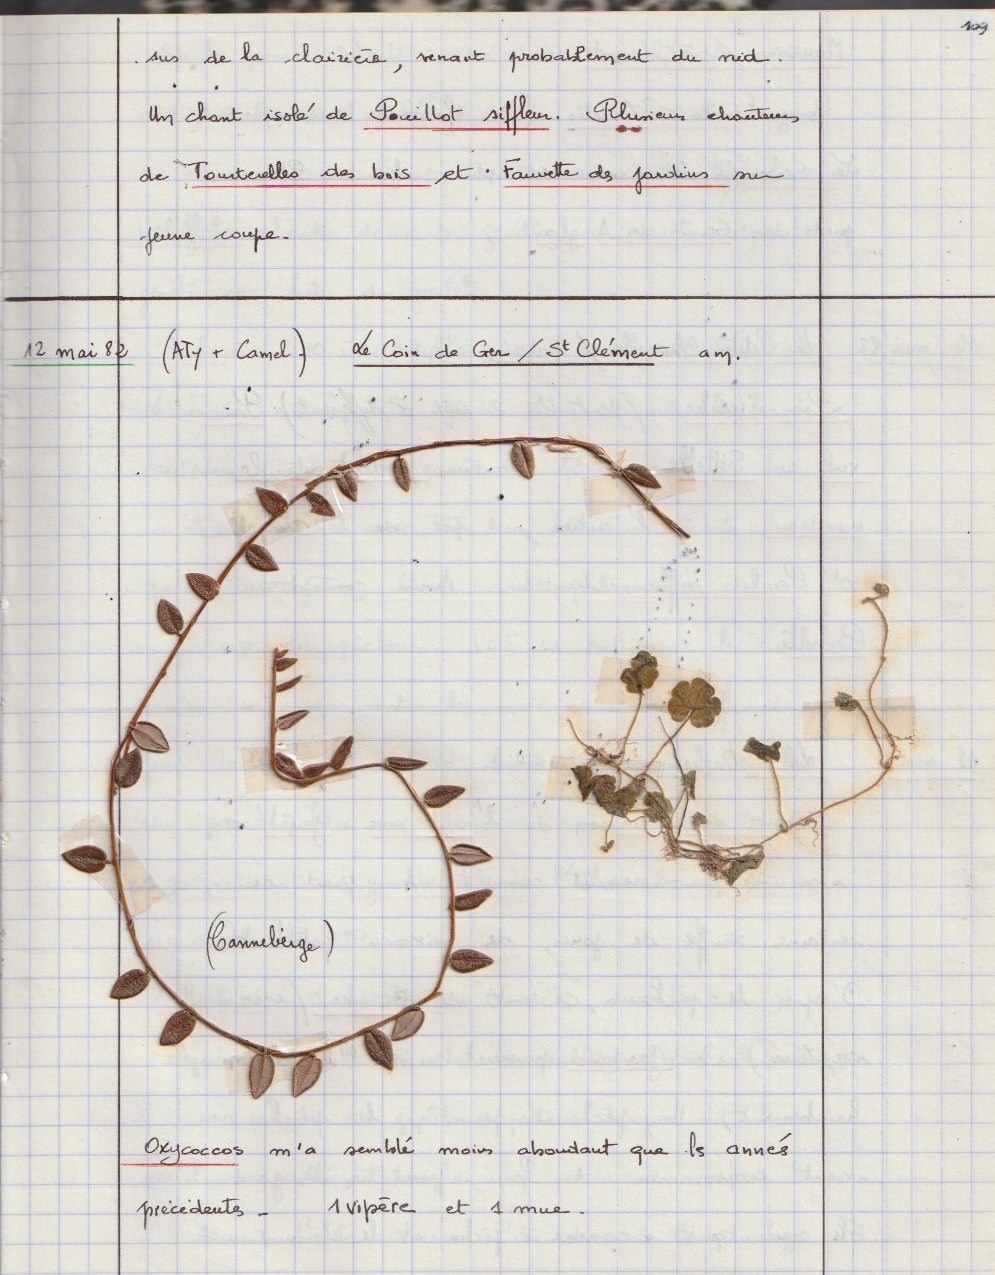 109
sus de la clairière, venant probablement du nid.
Un chant isolé de Pouillot siffleur. Plusieurs chanteurs
de Tourterelles des bois et Fauvette des jardins sur
jeune coupe.
12 mai 82 (ATy + Camel) Le Coin de Ger / St Clément am.
(Canneberge)
Oxycoccos m'a semblé moins abondant que ls annés
précédentes - 1 vipère et 1 mue.